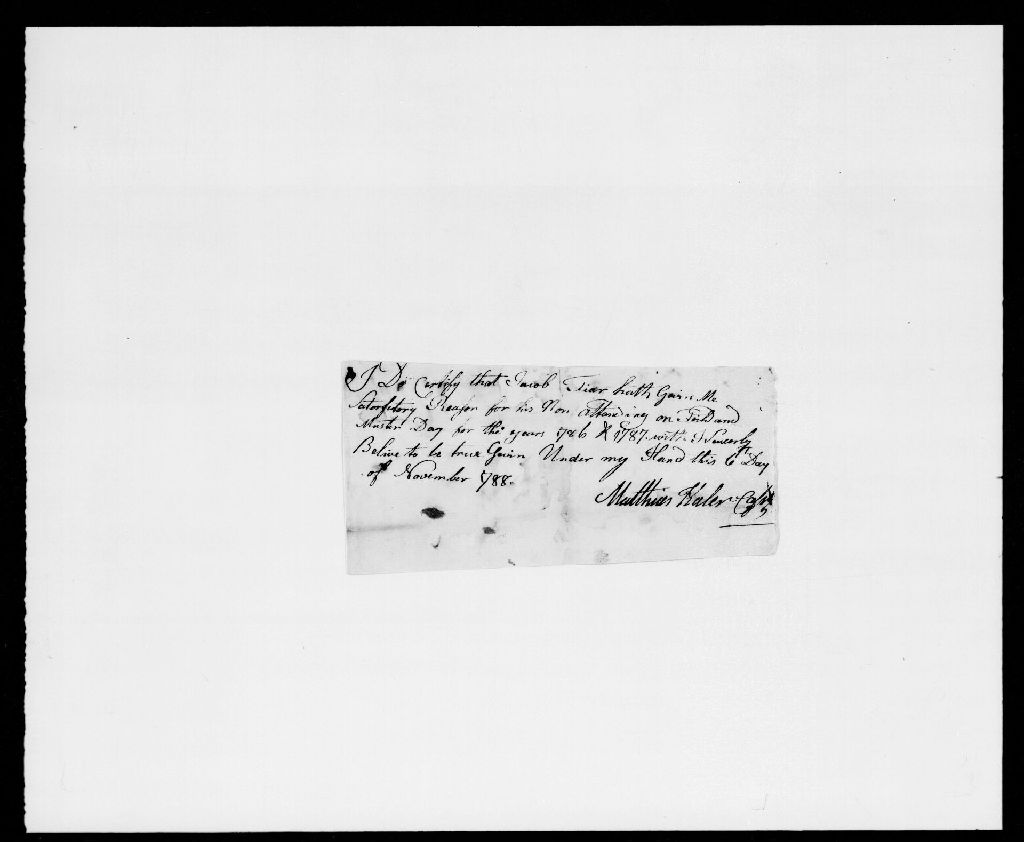 I Do Certify that Jacob Tiar hath Gain Me
Satorfctory Reason for his Non Attending on Field and
Muster Day for the years 1786 & 1787 with I Sincerly
Belive to be true Gevin Under my Hand this 6th Day
of November 1788.
Matthias Kaler Capt